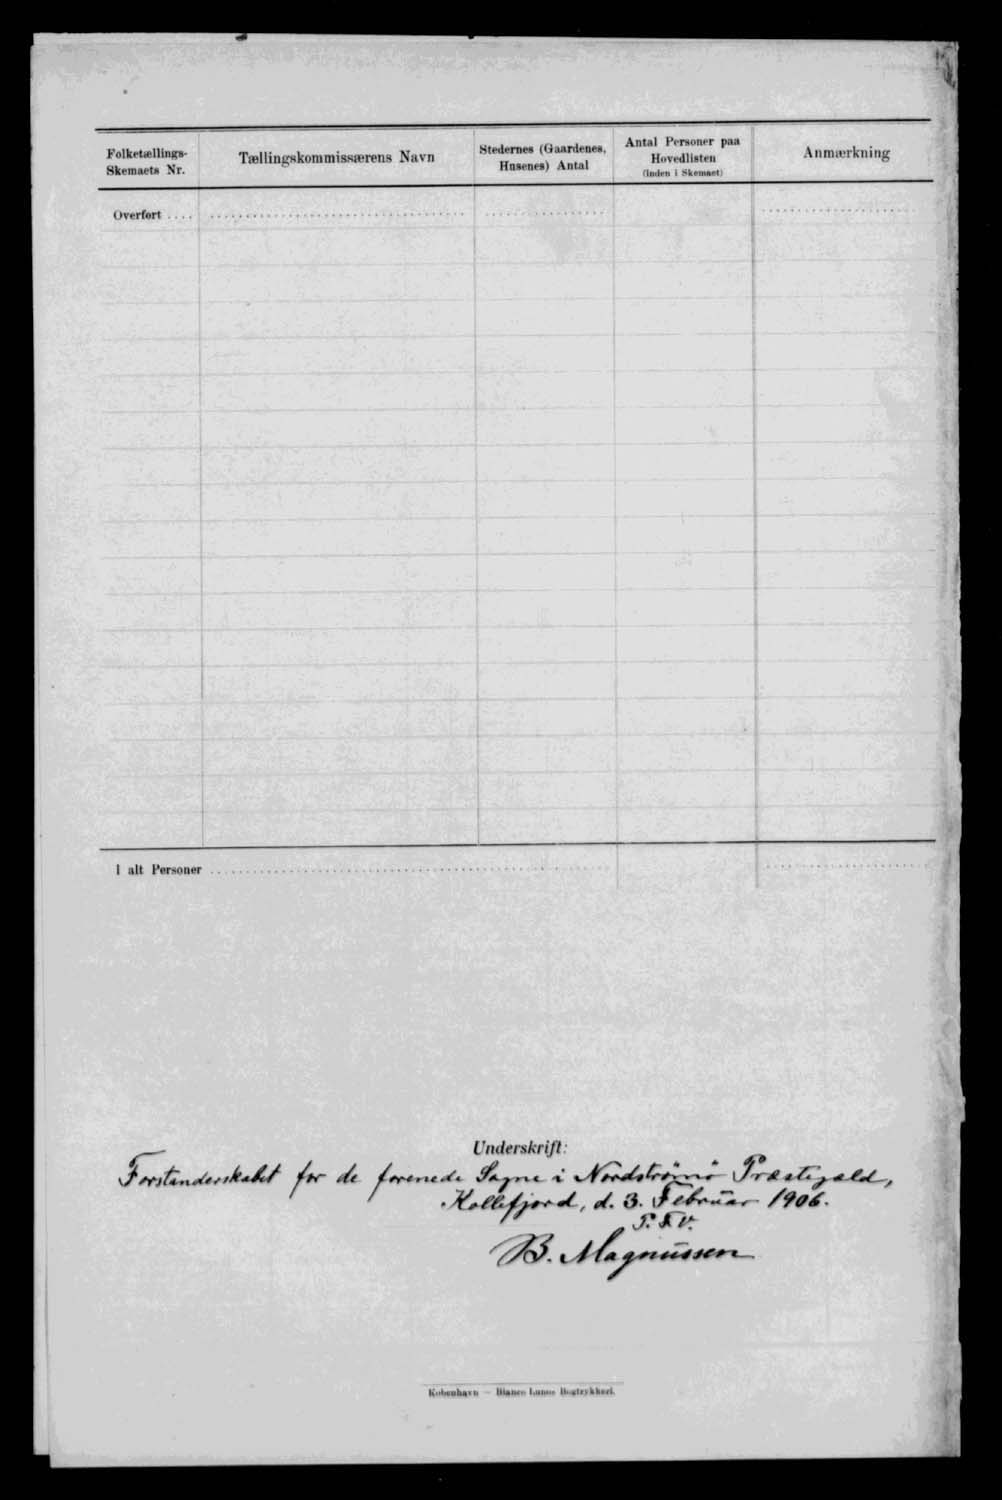 Folketællings-
Skemaets Nr.
Tællingskommissærens Navn
Stedernes (Gaardenes,
Husenes) Antal
Antal Personer paa
Hovedlisten
(inden i Skemaet)
Anmærkning
Overført
I alt Personer
Underskrift:
Forstanderskabet for de forenede Sogne i Nordströmö Præstegæld,
Kollefjord, d. 3. Februar 1906.
P. F. V.
B. Magnussen
København — Bianco Lunos Bogtrykkeri.